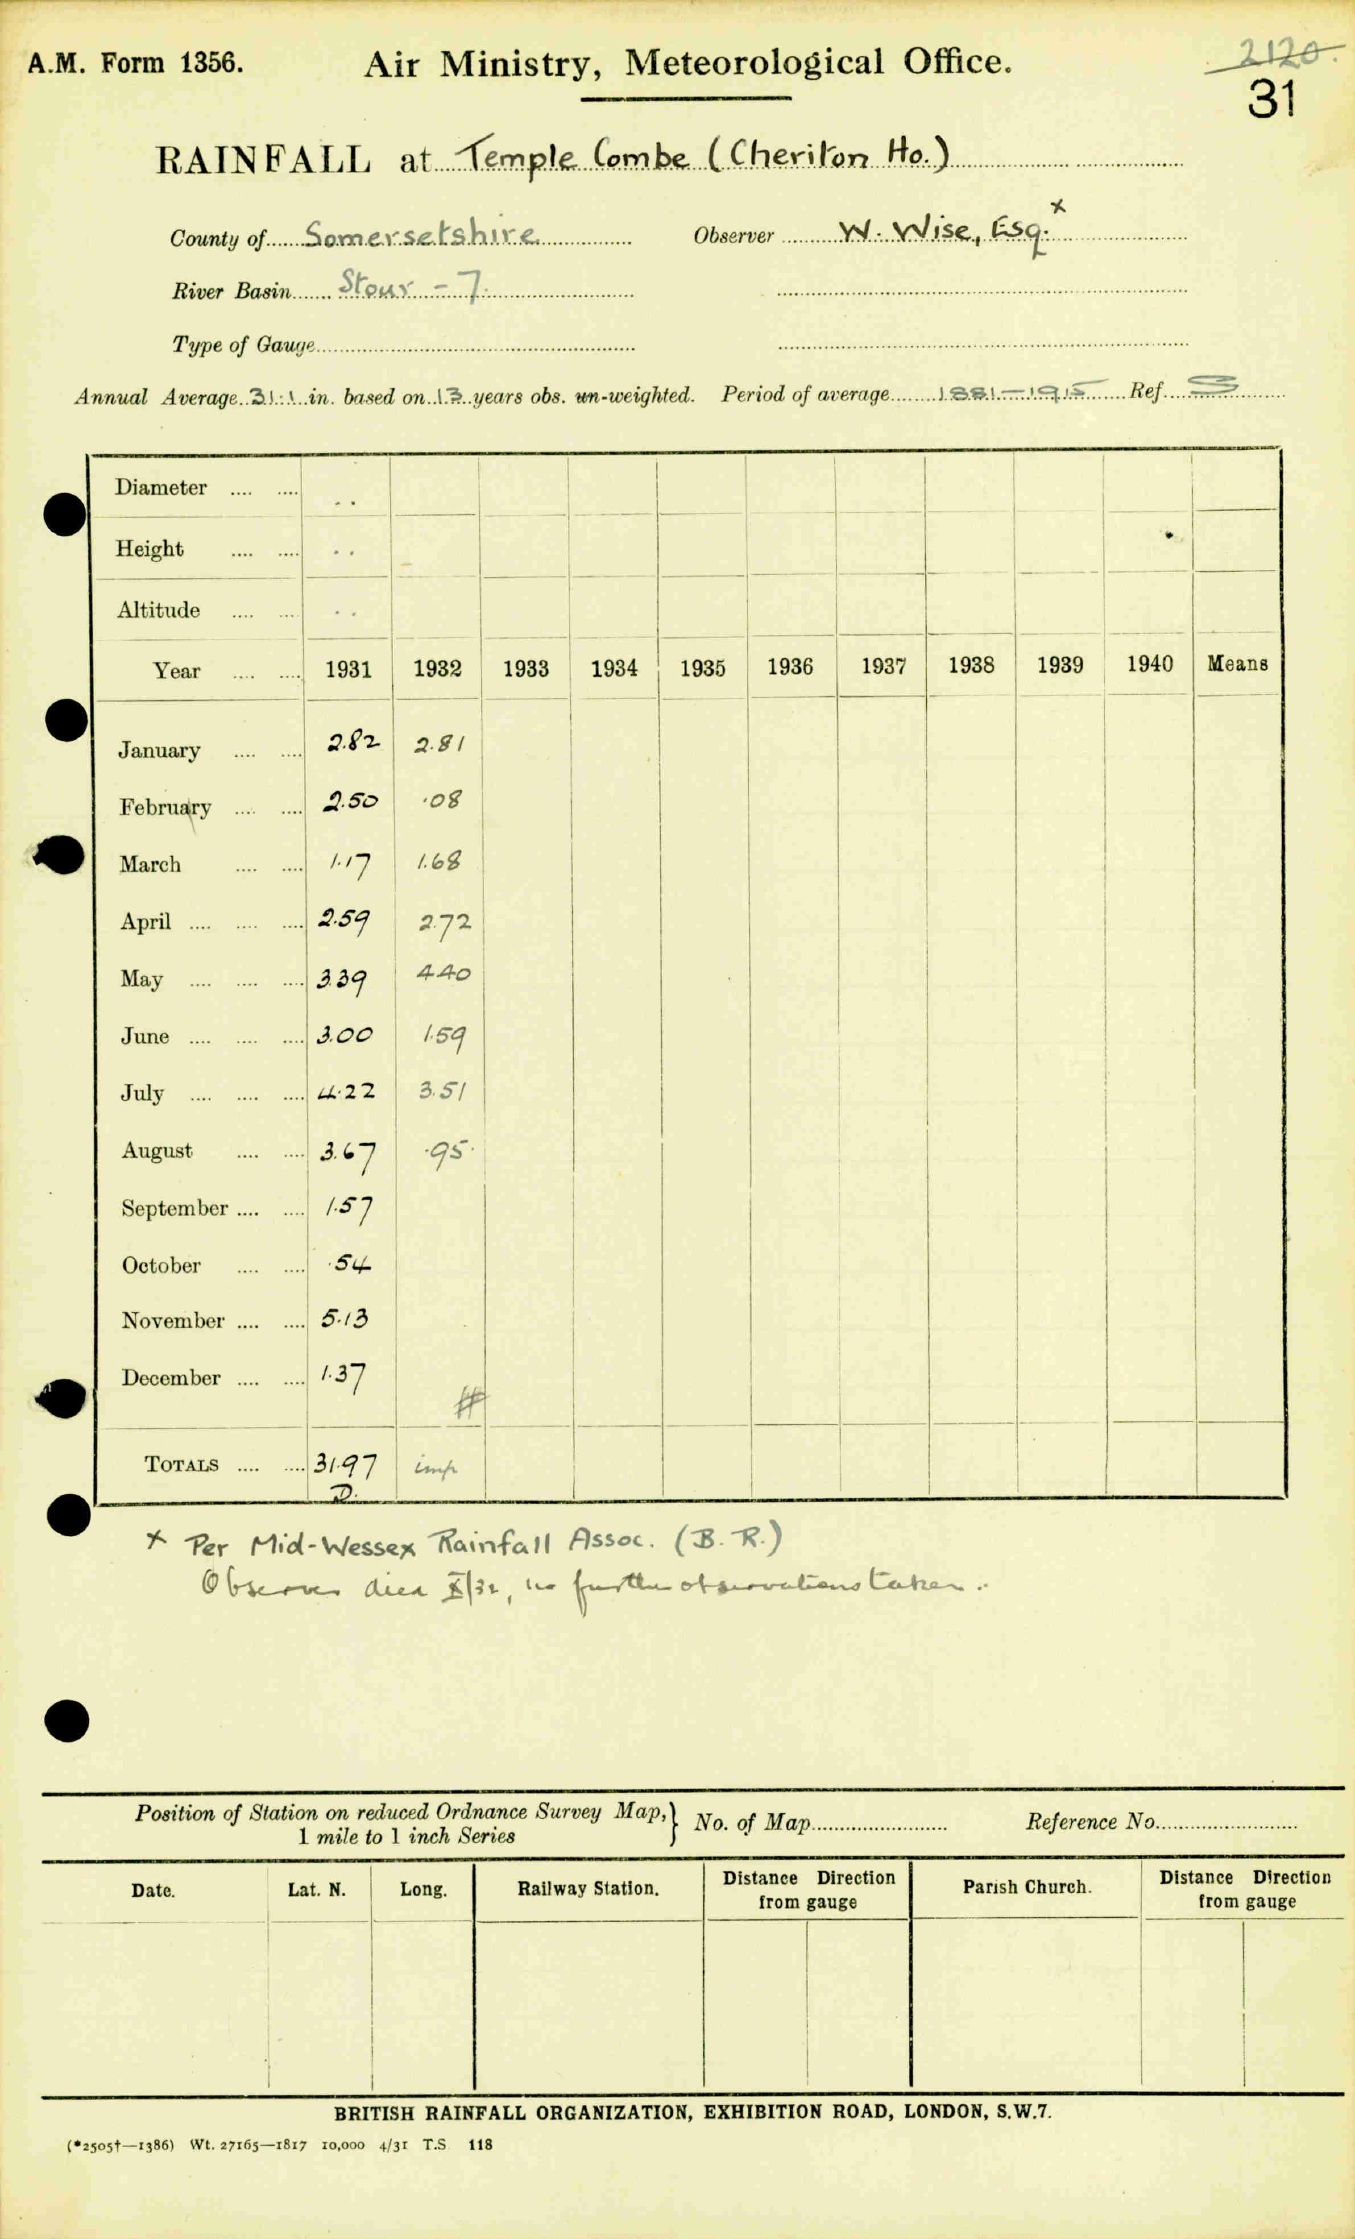 2120.
A.M. Form 1356. Air Ministry, Meteorological Office.
31
RAINFALL at Temple Combe (Cheriton Ho.)
County of Somersetshire Observer W. Wise, Esq. x
River Basin Stour - 7.
Type of Gauge
Annual Average 31.1 in. based on 13 years obs. un-weighted. Period of average 1881-1915 Ref. S
Diameter .... ....
Height .... ....
Altitude .... ....
Year .... .... 1931 1932 1933 1934 1935 1936 1937 1938 1939 1940 Means
January .... .... 2.82 2.81
February .... .... 2.50 .08
March .... .... 1.17 1.68
April .... .... .... 2.59 2.72
May .... .... .... 3.39 4.40
June .... .... .... 3.00 1.59
July .... .... .... 4.22 3.51
August .... .... 3.67 .95
September .... .... 1.57
October .... .... .54
November .... .... 5.13
December .... .... 1.37
#
TOTALS .... .... 31.97 imp
D.
x Per Mid-Wessex Rainfall Assoc. (B. R.)
Observer died X/32, no further observations taken.
Position of Station on reduced Ordnance Survey Map, } No. of Map Reference No.
1 mile to 1 inch Series
Date. Lat. N. Long. Railway Station. Distance Direction from gauge Parish Church. Distance Direction from gauge
BRITISH RAINFALL ORGANIZATION, EXHIBITION ROAD, LONDON, S.W.7.
(*2505†—1386) Wt. 27165—1817 10,000 4/31 T.S 118